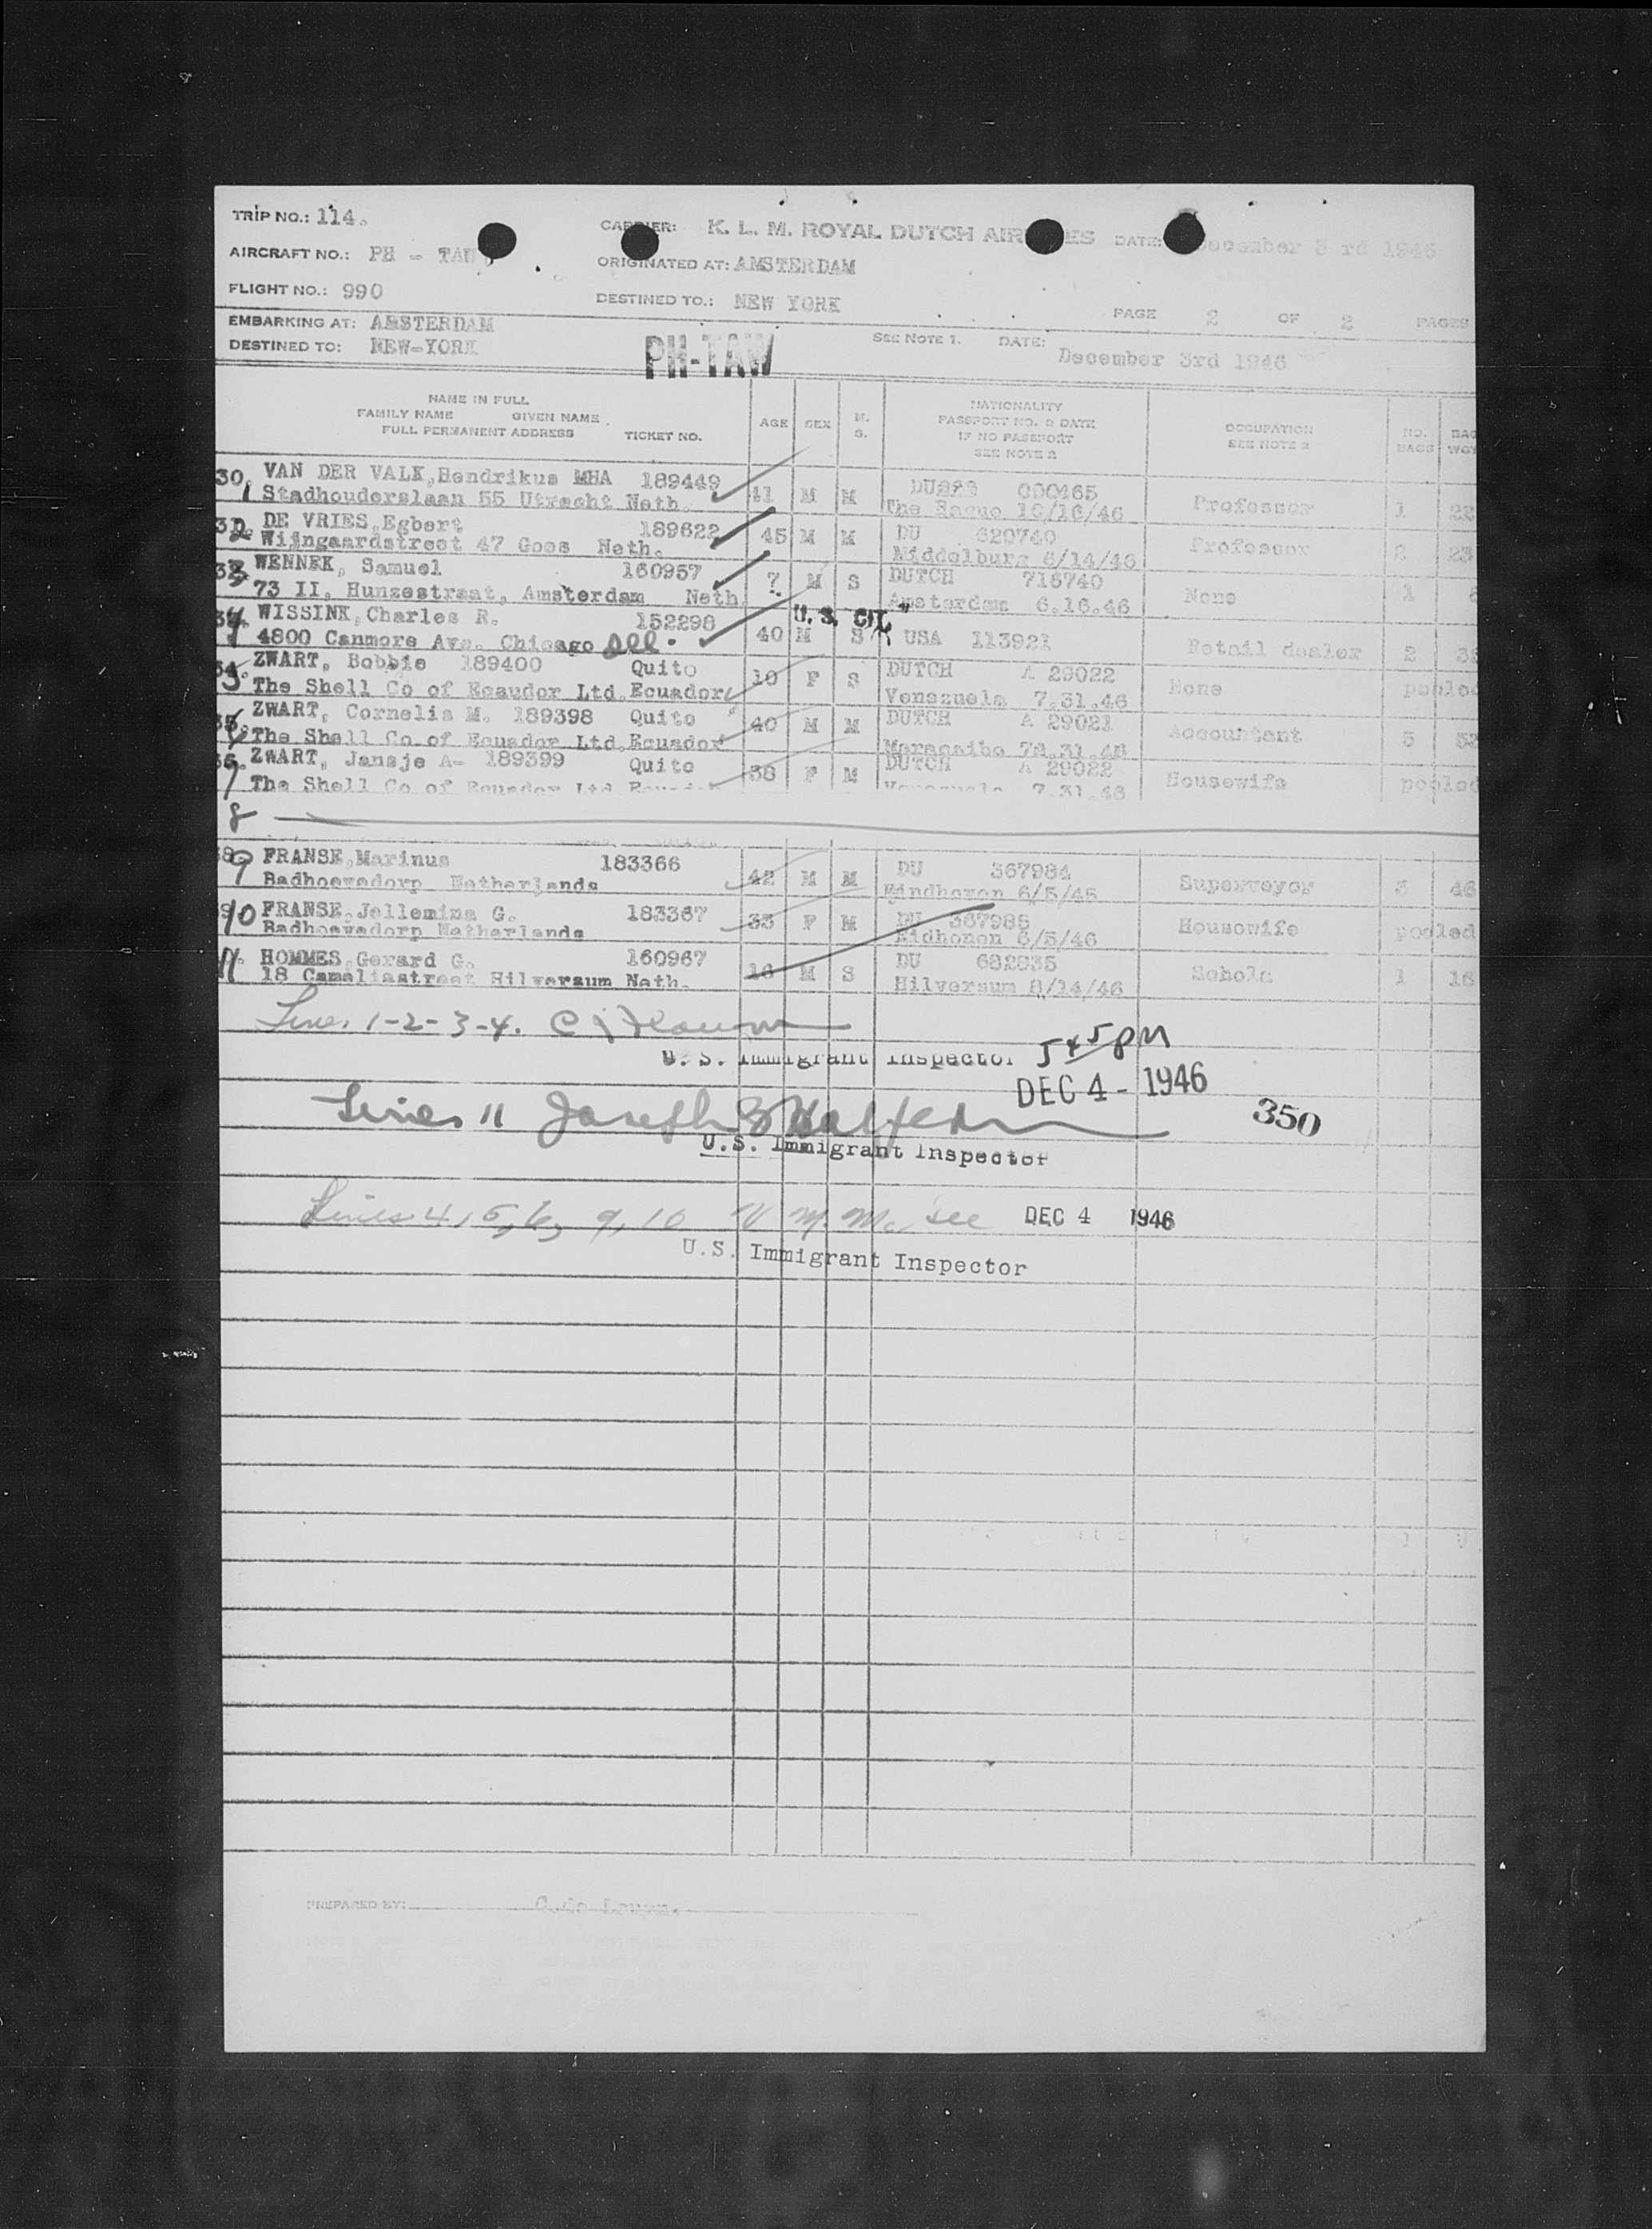 TRIP NO.: 114.
CARRIER: K. L. M. ROYAL DUTCH AIRLINES DATE: December 3 rd 1946
AIRCRAFT NO.: PH - TAW
ORIGINATED AT: AMSTERDAM
FLIGHT NO.: 990
DESTINED TO.: NEW YORK
PAGE 2 OF 2 PAGES
EMBARKING AT: AMSTERDAM
DESTINED TO: NEW-YORK
PH-TAW
SEE NOTE 1. DATE: December 3rd 1946
NAME IN FULL
FAMILY NAME GIVEN NAME
FULL PERMANENT ADDRESS TICKET NO.
AGE SEX M. S.
NATIONALITY
PASSPORT NO. & DATE
IF NO PASSPORT
SEE NOTE 2
OCCUPATION
SEE NOTE 2
NO. BAGS
BAG WGT
30. VAN DER VALK, Hendrikus MHA 189449
1 Stadhouderslaan 55 Utrecht Neth. 41 M M The Hague 10/16/46 Professor 1 22
DE VRIES, Egbert 189622 45 M M DU 620740
2 Wijngaardstreet 47 Goes Neth. Middelburg 6/14/46 Professor 2 23
WENNEK, Samuel 160957 ? M S DUTCH 716740
3 73 II, Hunzestraat, Amsterdam Neth. Amsterdam 6.16.46 None 1
WISSINK, Charles R. 152298 U. S. CIT.
4 4800 Canmore Ave. Chicago Ill. 40 M S USA 113921 Retail dealer 2
ZWART, Bobbie 189400 Quito 10 F S DUTCH A 29022
5 The Shell Co of Ecaudor Ltd. Ecuador Venezuela 7.31.46 None pooled
ZWART, Cornelis M. 189398 Quito 40 M M DUTCH A 29021
6 The Shell Co of Ecuador Ltd. Ecuador Maracaibo 7.31.46 Accountant 5
ZWART, Jansje A- 189399 Quito 38 F M DUTCH A 29022
7 The Shell Co of Ecuador Ltd Venezuela 7.31.46 Housewife pooled
8
9 FRANSE, Marinus 183366 42 M M DU 367984
Badhoevedorp Netherlands Eindhoven 6/5/46 Superveyor 3 46
10 FRANSE, Jellemina G. 183367 33 F M DU 367985
Badhoevedorp Netherlands Eidhonen 6/5/46 Housewife pooled
11 HOMMES, Gerard G. 160967 16 M S DU 682835
18 Cameliastreet Hilversum Neth. Hilversum 8/14/46 1 16
Lines 1-2-3-4.
U. S. Immigrant Inspector 545 PM
DEC 4 - 1946
Lines 11 Joseph
350
U.S. Immigrant Inspector
Lines 4, 5, 6, 9, 10 DEC 4 1946
U.S. Immigrant Inspector
PREPARED BY: